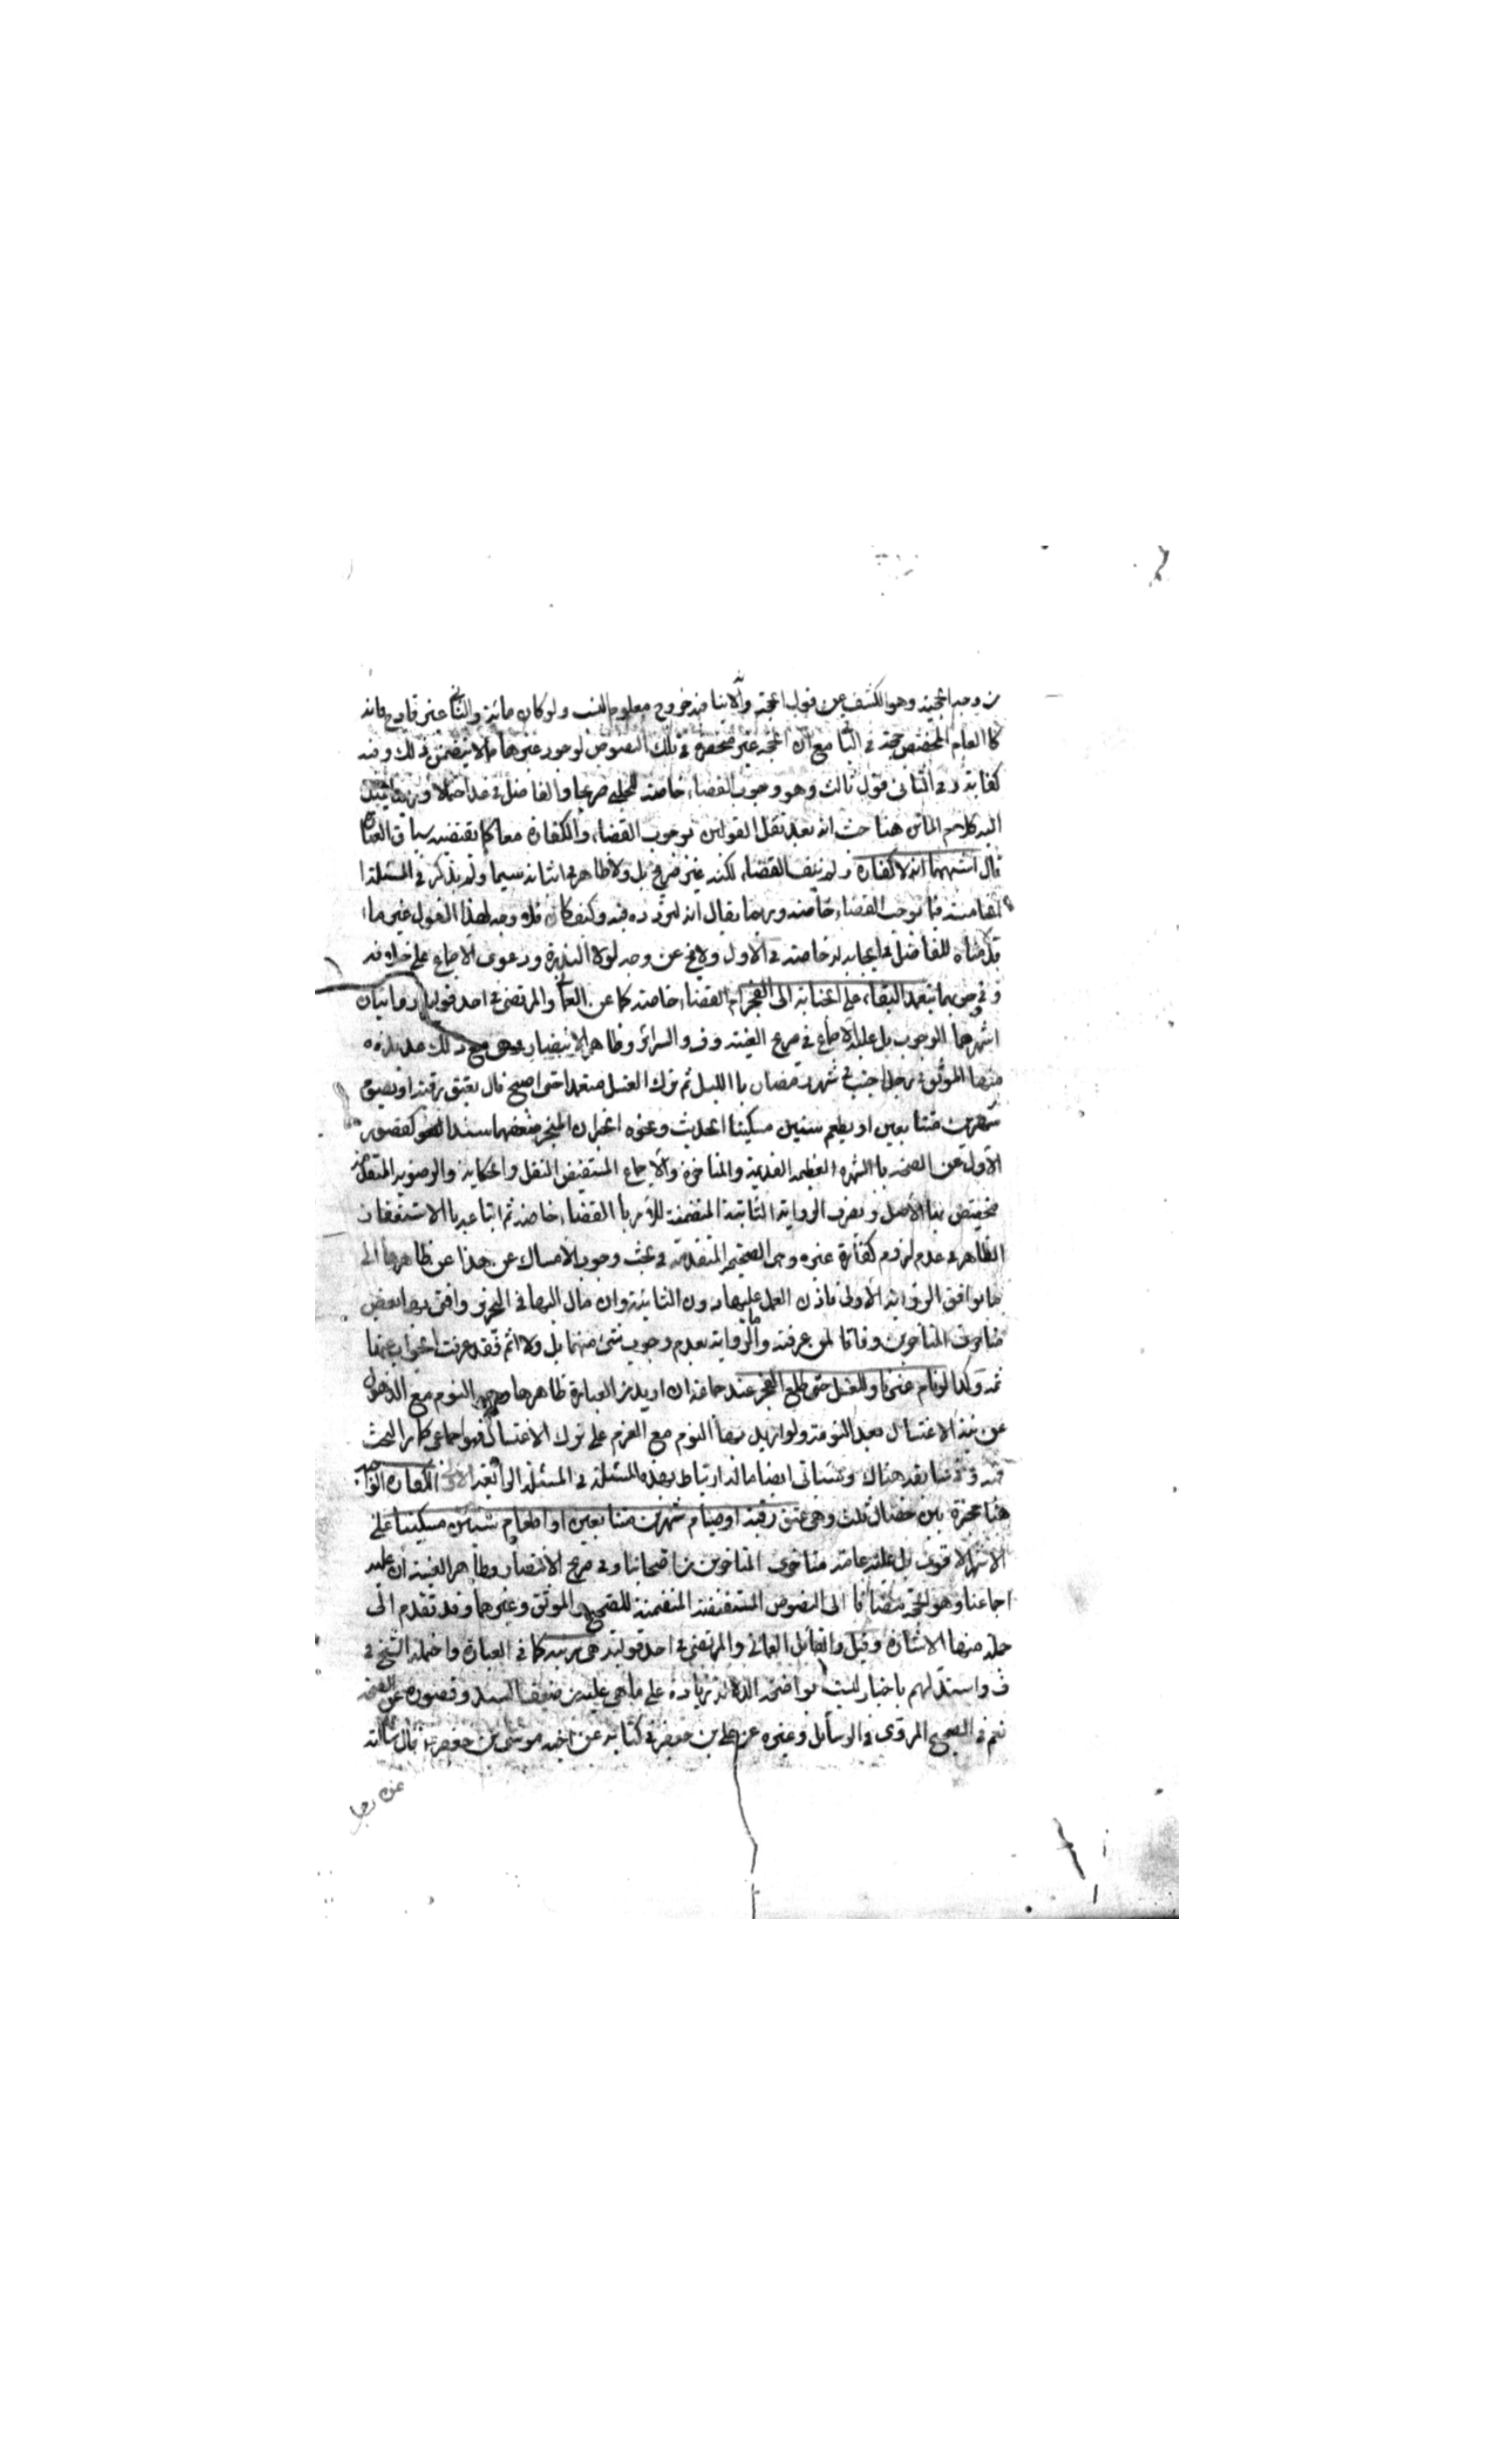 من وجه الحجية وهو الكشف عن قول الحجة والا بنا فيه خروج معلوم النسب ولو كان مائة والثاني غير قادح فانه
كالعام المخصص حجة في الباقي مع ان الحجة غير منحصرة في تلك النصوص لوجود غيرها مما لا يتضمن ذلك وفيه
كفاية وفي الثاني قول ثالث وهو وجوب القضاء خاصة للحلي صريحا والفاضل في عد احتمالا وربما يميل
اليه كلام الماتن هنا حيث انه بعد نقل القولين بوجوب القضاء والكفارة معا كما يقتضيه سياق العبارة
قال اشبههما انه لا كفارة ولم ينف القضاء لكنه غير صريح بل ولا ظاهر في اثباته سيما ولم يذكر في المسئلة
الخامسة فيما يوجب القضاء خاصة وربما يقال انه لتردده فيه وكيف كان فلا وجه لهذا القول غير ما
قدمناه للفاضل في ايجابه له خاصة في الاول ولا يخ عن وجه لولا الندرة ودعوى الاجماع على خلافه
وفي وجوبهما بتعمد البقاء على الجنابة الى الفجر ام القضاء خاصة كما عن العماني والمرتضى في احد قوليه روايتان
اشهرهما الوجوب بل عليه الاجماع في صريح الغنية وف والسرائر وظاهر الانتصار وهو مع ذلك مدلول
منها الموثق في رجل اجنب في شهر رمضان بالليل ثم ترك الغسل متعمدا حتى اصبح قال يعتق رقبة او يصوم
شهرين متتابعين او يطعم ستين مسكينا الحديث ونحوه الخبران المنجبر ضعفهما سندا كقصور
الاول عن الصحة بالشهرة العظيمة القديمة والمتاخرة والاجماع المستفيض النقل والحكاية والرضوية المتقدمة
فيختص بها الاصل ويصرف الرواية الثانية المتضمنة للامر بالقضاء خاصة ثم اتباعه بالاستغفار
الظاهر في عدم لزوم كفارة غيره وهي الصحيحة المتقدمة في بحث وجوب الامساك عن هذا عن ظاهرها الى
ما يوافق الرواية الاولى فاذن العمل عليها دون الثانية وان مال اليها في الجزء وافتى بها بعض
متاخري المتاخرين وفاقا لمن عرفته واما الرواية بعدم وجوب شئ منهما بل ولا اثم فقد عرفت الجواب عنها
ثمه وكذا لو نام غير ناو للغسل حتى طلع الفجر عند جماعة ان اريد من العبارة ظاهرها النوم مع الذهول
عن نية الاغتسال بعد النومة ولو اريد بها النوم مع العزم على ترك الاغتسال فهو اجماعي كما مر البحث
فيه وفي سابقه هناك وسياتي ايضا ماله ارتباط بهذه المسئلة في المسئلة الرابعة الاولى الكفارة الواجبة
هنا مخيرة بين خصال ثلث وهي عتق رقبة او صيام شهرين متتابعين او اطعام ستين مسكينا على
الاشهر الاقوى بل عليه عامة متاخري المتاخرين من اصحابنا وفي صريح الانتصار وظاهر الغنية ان عليه
اجماعنا وهو الحجة مضافا الى النصوص المستفيضة المتضمنة للصحيح والموثق وغيرهما وقد تقدم الى
جملة منها الاشارة وقيل والقائل العماني والمرتضى في احد قوليه هي مرتبة كما في العبارة واحتمله الشيخ في
ف واستدل لهم باخبار ليست بواضحة الدلالة زيادة على ما هي عليه من ضعف السند وقصوره عن الصحة
نعم في الصحيح المروي في الوسائل وغيره عن علي بن جعفر في كتابه عن اخيه موسى بن جعفر ع قال سالته
عن رجل